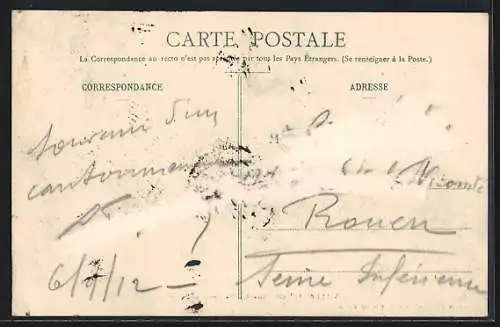 CARTE POSTALE
La Correspondance au recto n'est pas par tous les Pays Étrangers. (Se renseigner à la Poste.)
CORRESPONDANCE
ADRESSE
Souvenir d'un
cantonnement
Vicomté
Rouen
6/9/12
Seine Inférieure